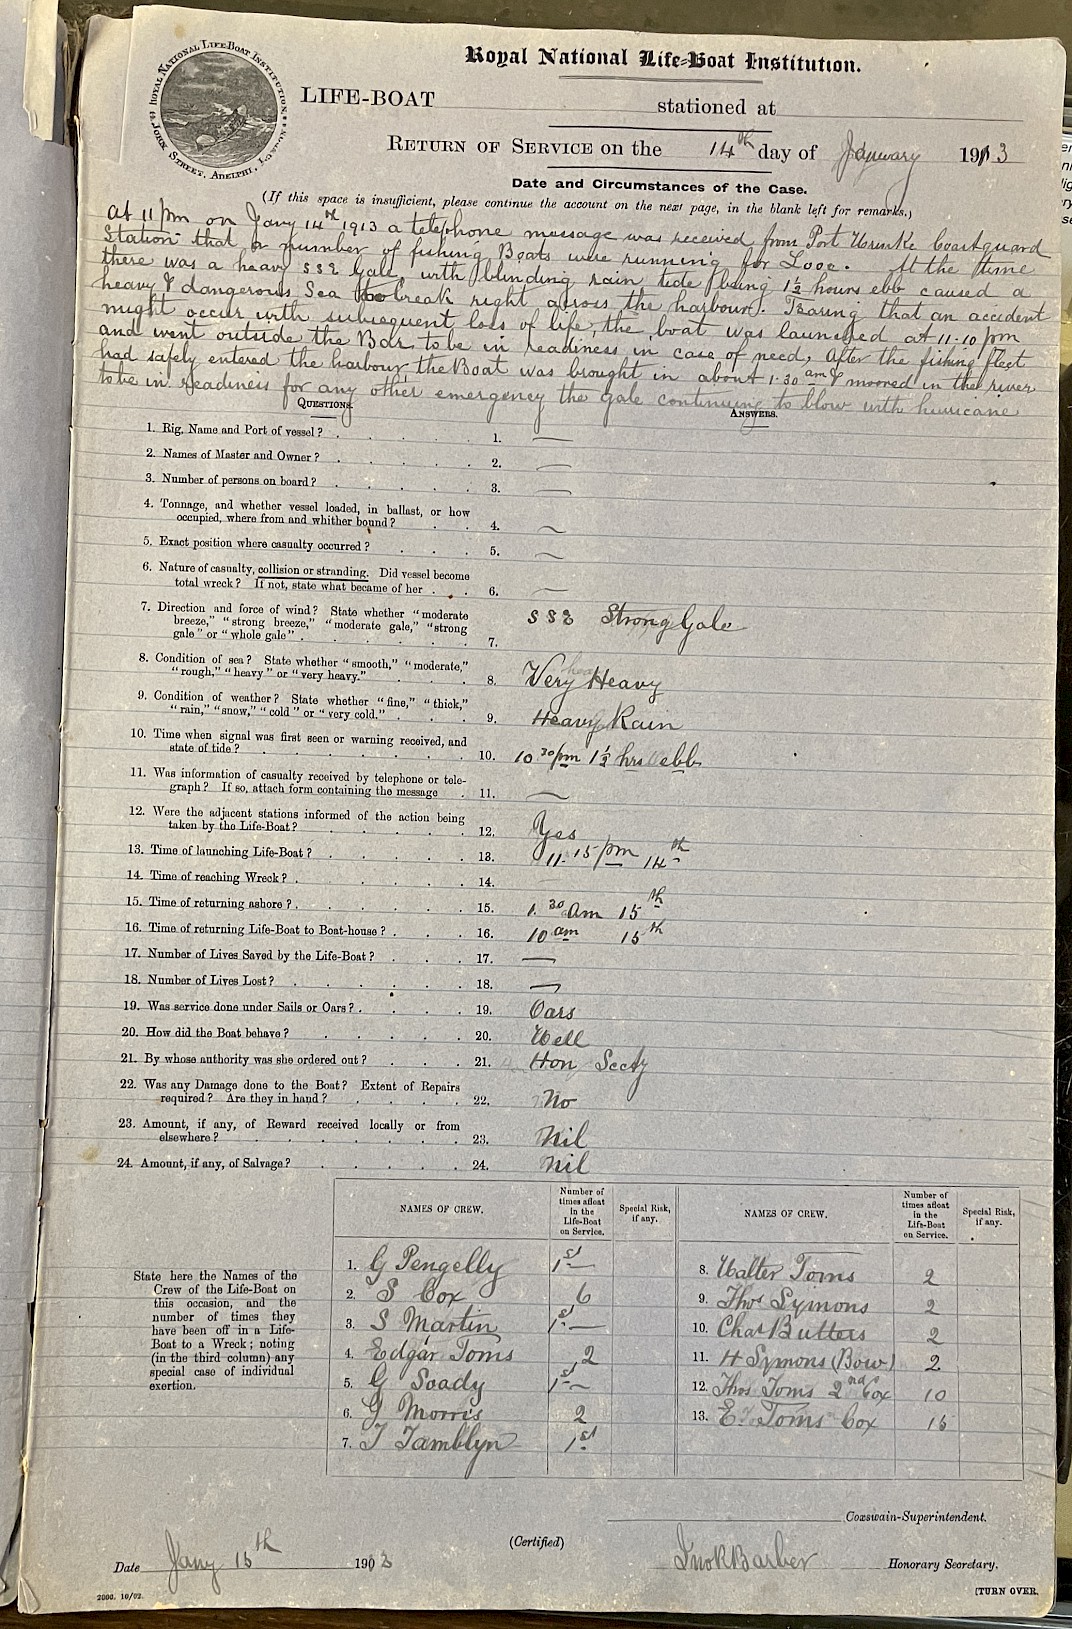 ROYAL NATIONAL LIFE-BOAT INSTITUTION. JOHN STREET, ADELPHI, LONDON
Royal National Life-Boat Institution.
LIFE-BOAT stationed at
RETURN OF SERVICE on the 14th day of January 1913
Date and Circumstances of the Case.
(If this space is insufficient, please continue the account on the next page, in the blank left for remarks.)
At 11 pm on Jany 14th 1913 a telephone message was received from Port Coastguard
Station that a number of fishing Boats were running for Looe. At the time
there was a heavy SSE Gale, with blinding rain, tide being 1½ hours ebb caused a
heavy & dangerous Sea to break right across the harbour. Fearing that an accident
might occur with subsequent loss of life, the boat was launched at 11-10 pm
and went outside the Bar to be in readiness in case of need, After the fishing fleet
had safely entered the harbour the Boat was brought in about 1-30 am & moored in the river
to be in readiness for any other emergency the Gale continuing to blow with hurricane
QUESTIONS. ANSWERS.
1. Rig, Name and Port of vessel? 1. —
2. Names of Master and Owner? 2. —
3. Number of persons on board? 3. —
4. Tonnage, and whether vessel loaded, in ballast, or how
occupied, where from and whither bound? 4. —
5. Exact position where casualty occurred? 5. —
6. Nature of casualty, collision or stranding. Did vessel become
total wreck? If not, state what became of her 6. —
7. Direction and force of wind? State whether "moderate
breeze," "strong breeze," "moderate gale," "strong
gale" or "whole gale" 7. SSE Strong Gale
8. Condition of sea? State whether "smooth," "moderate,"
"rough," "heavy" or "very heavy." 8. Very Heavy
9. Condition of weather? State whether "fine," "thick,"
"rain," "snow," "cold" or "very cold." 9. Heavy Rain
10. Time when signal was first seen or warning received, and
state of tide? 10. 10 30 pm 1½ hrs ebb
11. Was information of casualty received by telephone or tele-
graph? If so, attach form containing the message 11. —
12. Were the adjacent stations informed of the action being
taken by the Life-Boat? 12. Yes
13. Time of launching Life-Boat? 13. 11-15 pm 14th
14. Time of reaching Wreck? 14.
15. Time of returning ashore? 15. 1.30 am 15th
16. Time of returning Life-Boat to Boat-house? 16. 10 am 15th
17. Number of Lives Saved by the Life-Boat? 17. —
18. Number of Lives Lost? 18. —
19. Was service done under Sails or Oars? 19. Oars
20. How did the Boat behave? 20. Well
21. By whose authority was she ordered out? 21. Hon Secty
22. Was any Damage done to the Boat? Extent of Repairs
required? Are they in hand? 22. No
23. Amount, if any, of Reward received locally or from
elsewhere? 23. Nil
24. Amount, if any, of Salvage? 24. nil
State here the Names of the
Crew of the Life-Boat on
this occasion, and the
number of times they
have been off in a Life-
Boat to a Wreck; noting
(in the third column) any
special case of individual
exertion.
NAMES OF CREW. Number of times afloat in the Life-Boat on Service. Special Risk, if any.
1. G Pengelly 1st
2. S Cox 6
3. S Martin 1st
4. Edgar Toms 2
5. G Soady 1st
6. G Morris 2
7. T Tamblyn 1st
NAMES OF CREW. Number of times afloat in the Life-Boat on Service. Special Risk, if any.
8. Walter Toms 2
9. Thos Symons 2
10. Chas Butters 2
11. H Symons (Bow) 2
12. Thos Toms 2nd Cox 10
13. E Toms Cox 15
Coxswain-Superintendent.
(Certified)
Date Jany 15th 1903 Barber Honorary Secretary.
2000. 10/02. [TURN OVER.